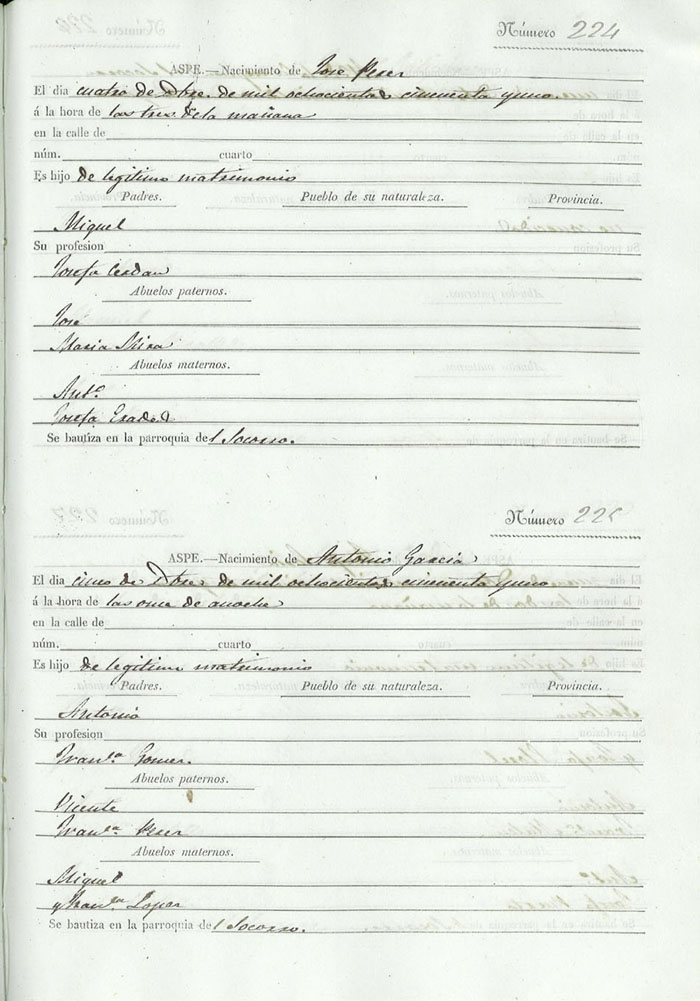 Número 224
ASPE.—Nacimiento de José Perez
El dia cuatro de Dbre. de mil ochocientos cincuenta y uno.
á la hora de las tres de la mañana
en la calle de
núm. cuarto
Es hijo de legitimo matrimonio
Padres. Pueblo de su naturaleza. Provincia.
Miguel
Su profesion
Josefa Cerdan
Abuelos paternos.
José
Maria Mira
Abuelos maternos.
Antº.
Josefa
Se bautiza en la parroquia del Socorro.
Número 225
ASPE.—Nacimiento de Antonio Garcia
El dia cinco de Dbre. de mil ochocientos cincuenta y uno
á la hora de las once de anoche
en la calle de
núm. cuarto
Es hijo de legitimo matrimonio
Padres. Pueblo de su naturaleza. Provincia.
Antonio
Su profesion
Franca. Gomez.
Abuelos paternos.
Vicente
Franca. Perez
Abuelos maternos.
Miguel
y Franca. Lopez
Se bautiza en la parroquia del Socorro.